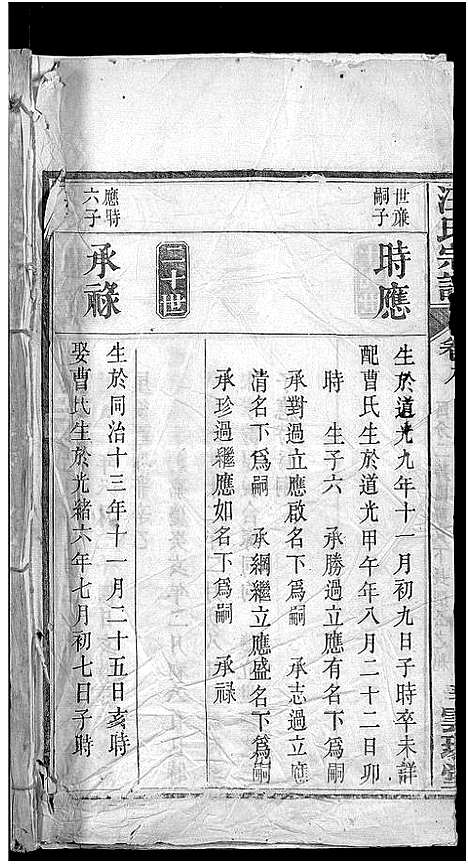 汪氏宗譜
卷八
世兼嗣子
時應
生於道光九年十一月初九日子時卒未詳
配曹氏生於道光甲午年八月二十二日卯
時　生子六　承勝過立應有名下爲嗣
承對過立應啟名下爲嗣　承志過立應
清名下爲嗣　承綱繼立應盛名下爲嗣
承珍過繼應如名下爲嗣　承祿
二十世
應時六子
承祿
生於同治十三年十一月二十五日亥時
娶曹氏生於光緒六年七月初七日子時